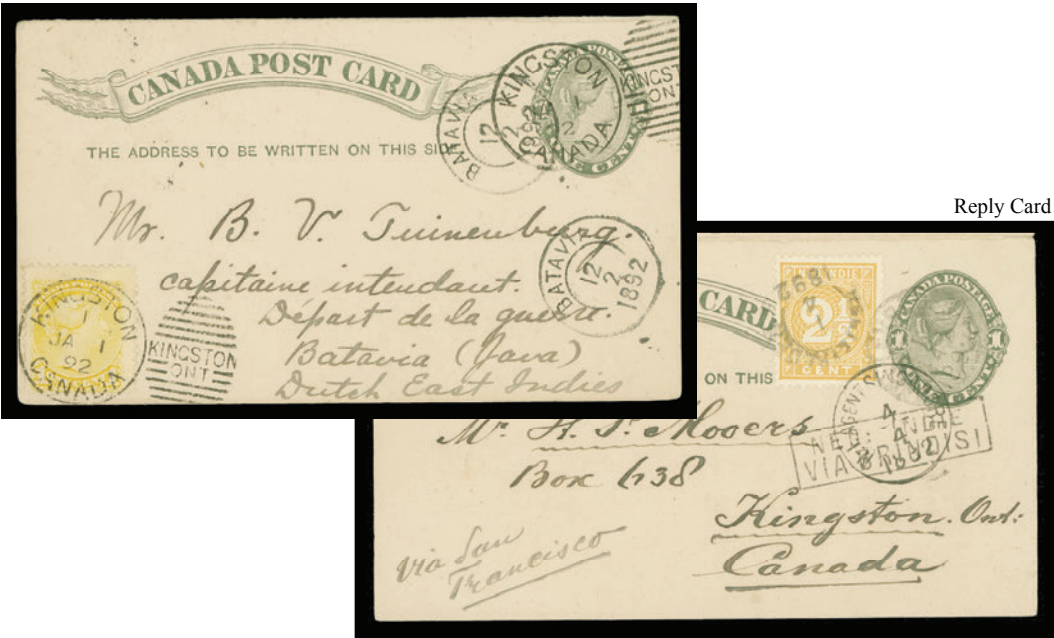 CANADA POST CARD
THE ADDRESS TO BE WRITTEN ON THIS SI
CANADA POS
NE CENT
KINGSTON
JA 1
92
CANADA
KINGST
ON
BATAVIA
12
2
189
Mr. B. V. Tuinenburg.
capitaine intendant.
Départ de la guerre.
Batavia (Java)
Dutch East Indies
BATAVIA
12
2
1892
KINGSTON
1
JA 1
92
CANADA
KINGSTON
ONT
Reply Card
CARD
ON THIS
NED. INDIE
2½
CENT
CANADA POSTAGE
1 1
ONE CENT
1892
4
4
1892
NED: INDIE
VIA BRINDISI
Mr. H. P. Mooers
Box 638
Kingston. Ont:
Canada
via San
Francisco